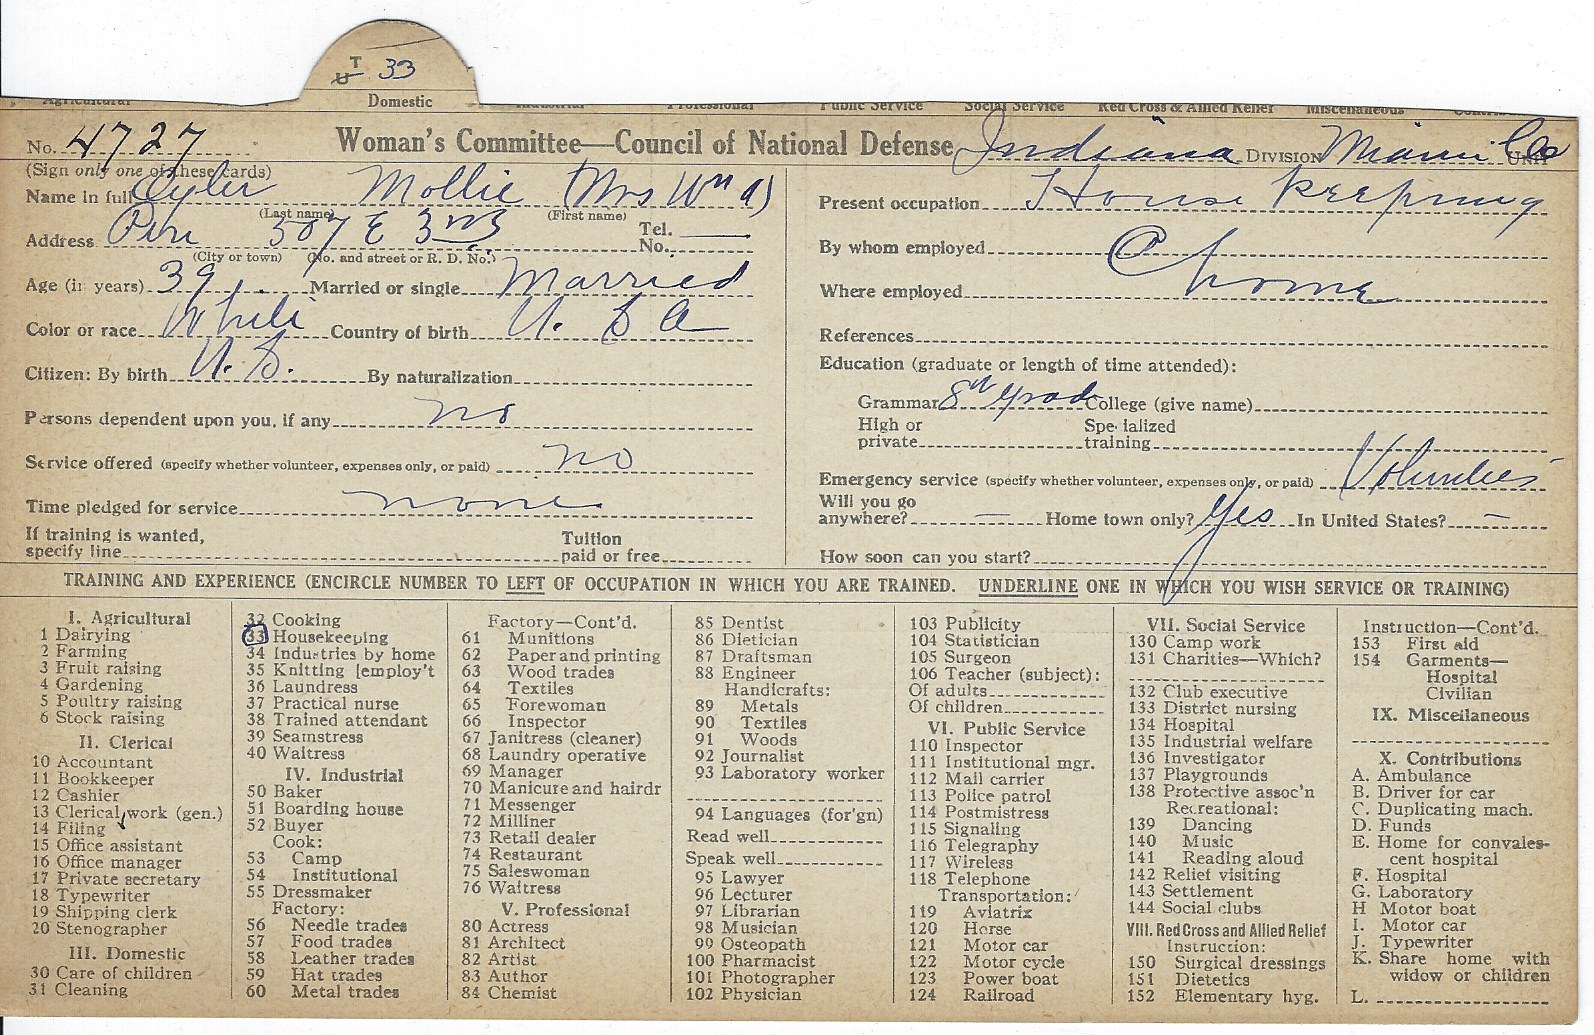 T
U 33
Agricultural Domestic Industrial Professional Public Service Social Service Red Cross & Allied Relief Miscellaneous
No. 4727 Woman's Committee—Council of National Defense Indiana DIVISION Miami Co UNIT
(Sign only one of these cards)
Name in full Oyler Mollie (Mrs Wm A)
(Last name) (First name)
Address Peru 507 E 3rd Tel. No.
(City or town) (No. and street or R. D. No.)
Age (in years) 39 Married or single Married
Color or race White Country of birth U. S A
Citizen: By birth U. S. By naturalization
Persons dependent upon you, if any no
Service offered (specify whether volunteer, expenses only, or paid) no
Time pledged for service none
If training is wanted, specify line Tuition paid or free
Present occupation House keeping
By whom employed @
Where employed home
References
Education (graduate or length of time attended):
Grammar 8th grade College (give name)
High or private Specialized training
Emergency service (specify whether volunteer, expenses only, or paid) Volunteer
Will you go anywhere? — Home town only? Yes In United States? —
How soon can you start?
TRAINING AND EXPERIENCE (ENCIRCLE NUMBER TO LEFT OF OCCUPATION IN WHICH YOU ARE TRAINED. UNDERLINE ONE IN WHICH YOU WISH SERVICE OR TRAINING)
I. Agricultural
1 Dairying
2 Farming
3 Fruit raising
4 Gardening
5 Poultry raising
6 Stock raising
II. Clerical
10 Accountant
11 Bookkeeper
12 Cashier
13 Clerical work (gen.)
14 Filing
15 Office assistant
16 Office manager
17 Private secretary
18 Typewriter
19 Shipping clerk
20 Stenographer
III. Domestic
30 Care of children
31 Cleaning
32 Cooking
33 Housekeeping
34 Industries by home
35 Knitting [employ't
36 Laundress
37 Practical nurse
38 Trained attendant
39 Seamstress
40 Waitress
IV. Industrial
50 Baker
51 Boarding house
52 Buyer
Cook:
53 Camp
54 Institutional
55 Dressmaker
Factory:
56 Needle trades
57 Food trades
58 Leather trades
59 Hat trades
60 Metal trades
Factory—Cont'd.
61 Munitions
62 Paper and printing
63 Wood trades
64 Textiles
65 Forewoman
66 Inspector
67 Janitress (cleaner)
68 Laundry operative
69 Manager
70 Manicure and hairdr
71 Messenger
72 Milliner
73 Retail dealer
74 Restaurant
75 Saleswoman
76 Waitress
V. Professional
80 Actress
81 Architect
82 Artist
83 Author
84 Chemist
85 Dentist
86 Dietician
87 Draftsman
88 Engineer
Handicrafts:
89 Metals
90 Textiles
91 Woods
92 Journalist
93 Laboratory worker
94 Languages (for'gn)
Read well
Speak well
95 Lawyer
96 Lecturer
97 Librarian
98 Musician
99 Osteopath
100 Pharmacist
101 Photographer
102 Physician
103 Publicity
104 Statistician
105 Surgeon
106 Teacher (subject):
Of adults
Of children
VI. Public Service
110 Inspector
111 Institutional mgr.
112 Mail carrier
113 Police patrol
114 Postmistress
115 Signaling
116 Telegraphy
117 Wireless
118 Telephone
Transportation:
119 Aviatrix
120 Horse
121 Motor car
122 Motor cycle
123 Power boat
124 Railroad
VII. Social Service
130 Camp work
131 Charities—Which?
132 Club executive
133 District nursing
134 Hospital
135 Industrial welfare
136 Investigator
137 Playgrounds
138 Protective assoc'n
Recreational:
139 Dancing
140 Music
141 Reading aloud
142 Relief visiting
143 Settlement
144 Social clubs
VIII. Red Cross and Allied Relief
Instruction:
150 Surgical dressings
151 Dietetics
152 Elementary hyg.
Instruction—Cont'd.
153 First aid
154 Garments—
Hospital
Civilian
IX. Miscellaneous
X. Contributions
A. Ambulance
B. Driver for car
C. Duplicating mach.
D. Funds
E. Home for convales-
cent hospital
F. Hospital
G. Laboratory
H Motor boat
I. Motor car
J. Typewriter
K. Share home with
widow or children
L.